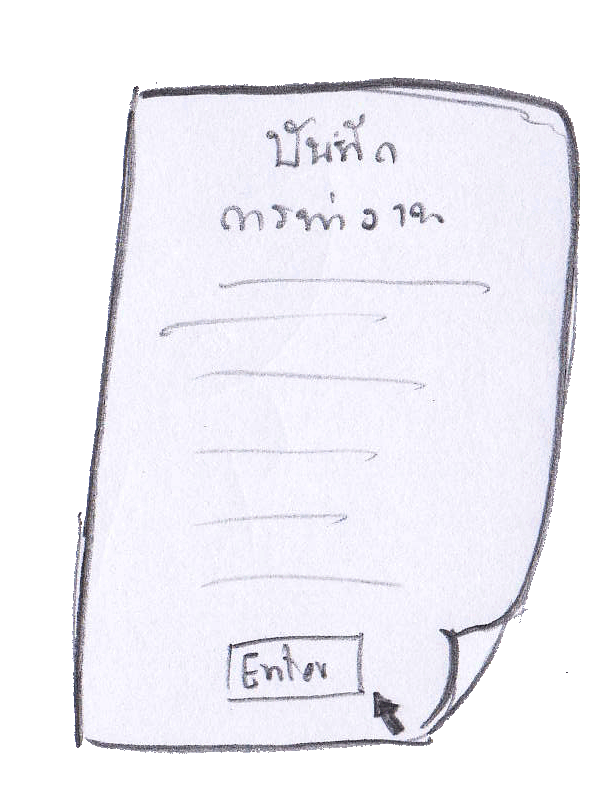 บันทึก
การทำงาน
Enter